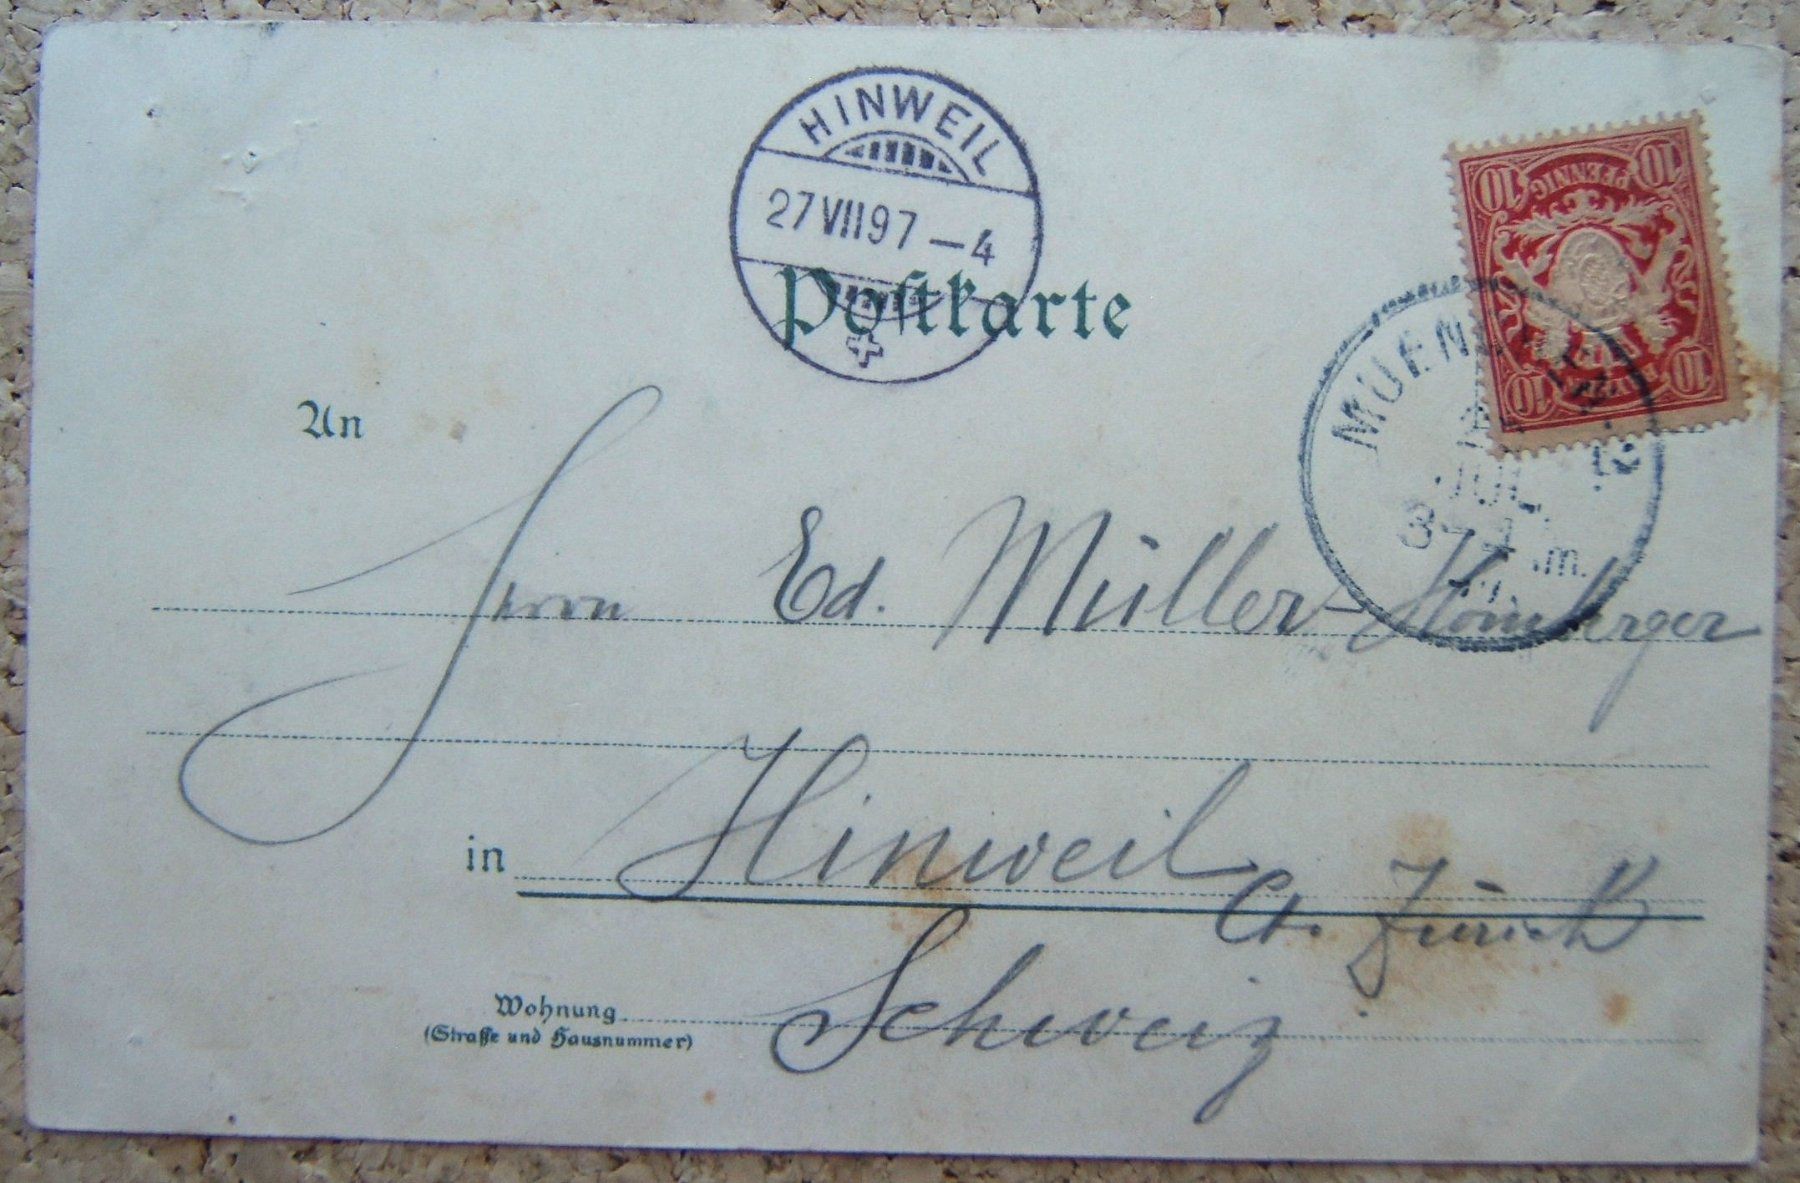 HINWEIL
27 VII 97 – 4
10 PFENNIG 10
10 10
Postkarte
MUENCHEN
JUL.
An
Herrn Ed. Müller-Homberger
in Hinweil
Ct. Zürich
Schweiz
Wohnung
(Straße und Hausnummer)